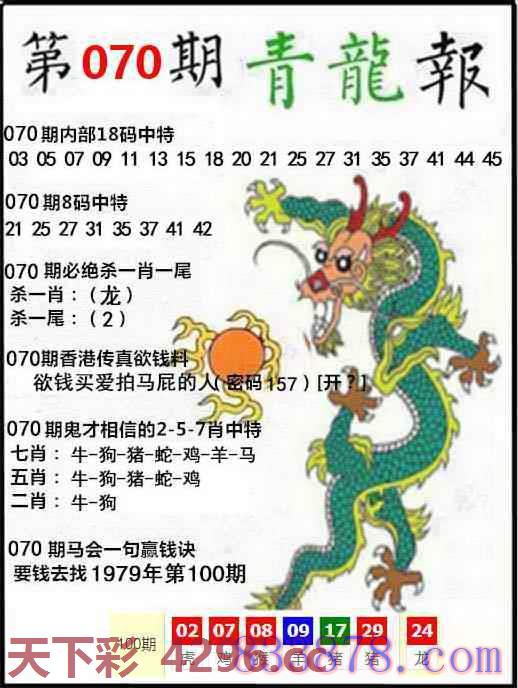 第070期 青龍報
070期内部18码中特
03 05 07 09 11 13 15 18 20 21 25 27 31 35 37 41 44 45
070期8码中特
21 25 27 31 35 37 41 42
070期必绝杀一肖一尾
杀一肖：(龙)
杀一尾：(2)
070期香港传真欲钱料
欲钱买爱拍马屁的人(密码157)[开?]
070期鬼才相信的2-5-7肖中特
七肖：牛-狗-猪-蛇-鸡-羊-马
五肖：牛-狗-猪-蛇-鸡
二肖：牛-狗
070期马会一句赢钱诀
要钱去找1979年第100期
100期 02 07 08 09 17 29 24
虎 鸡 猴 羊 猪 猪 龙
天下彩 4296.cc